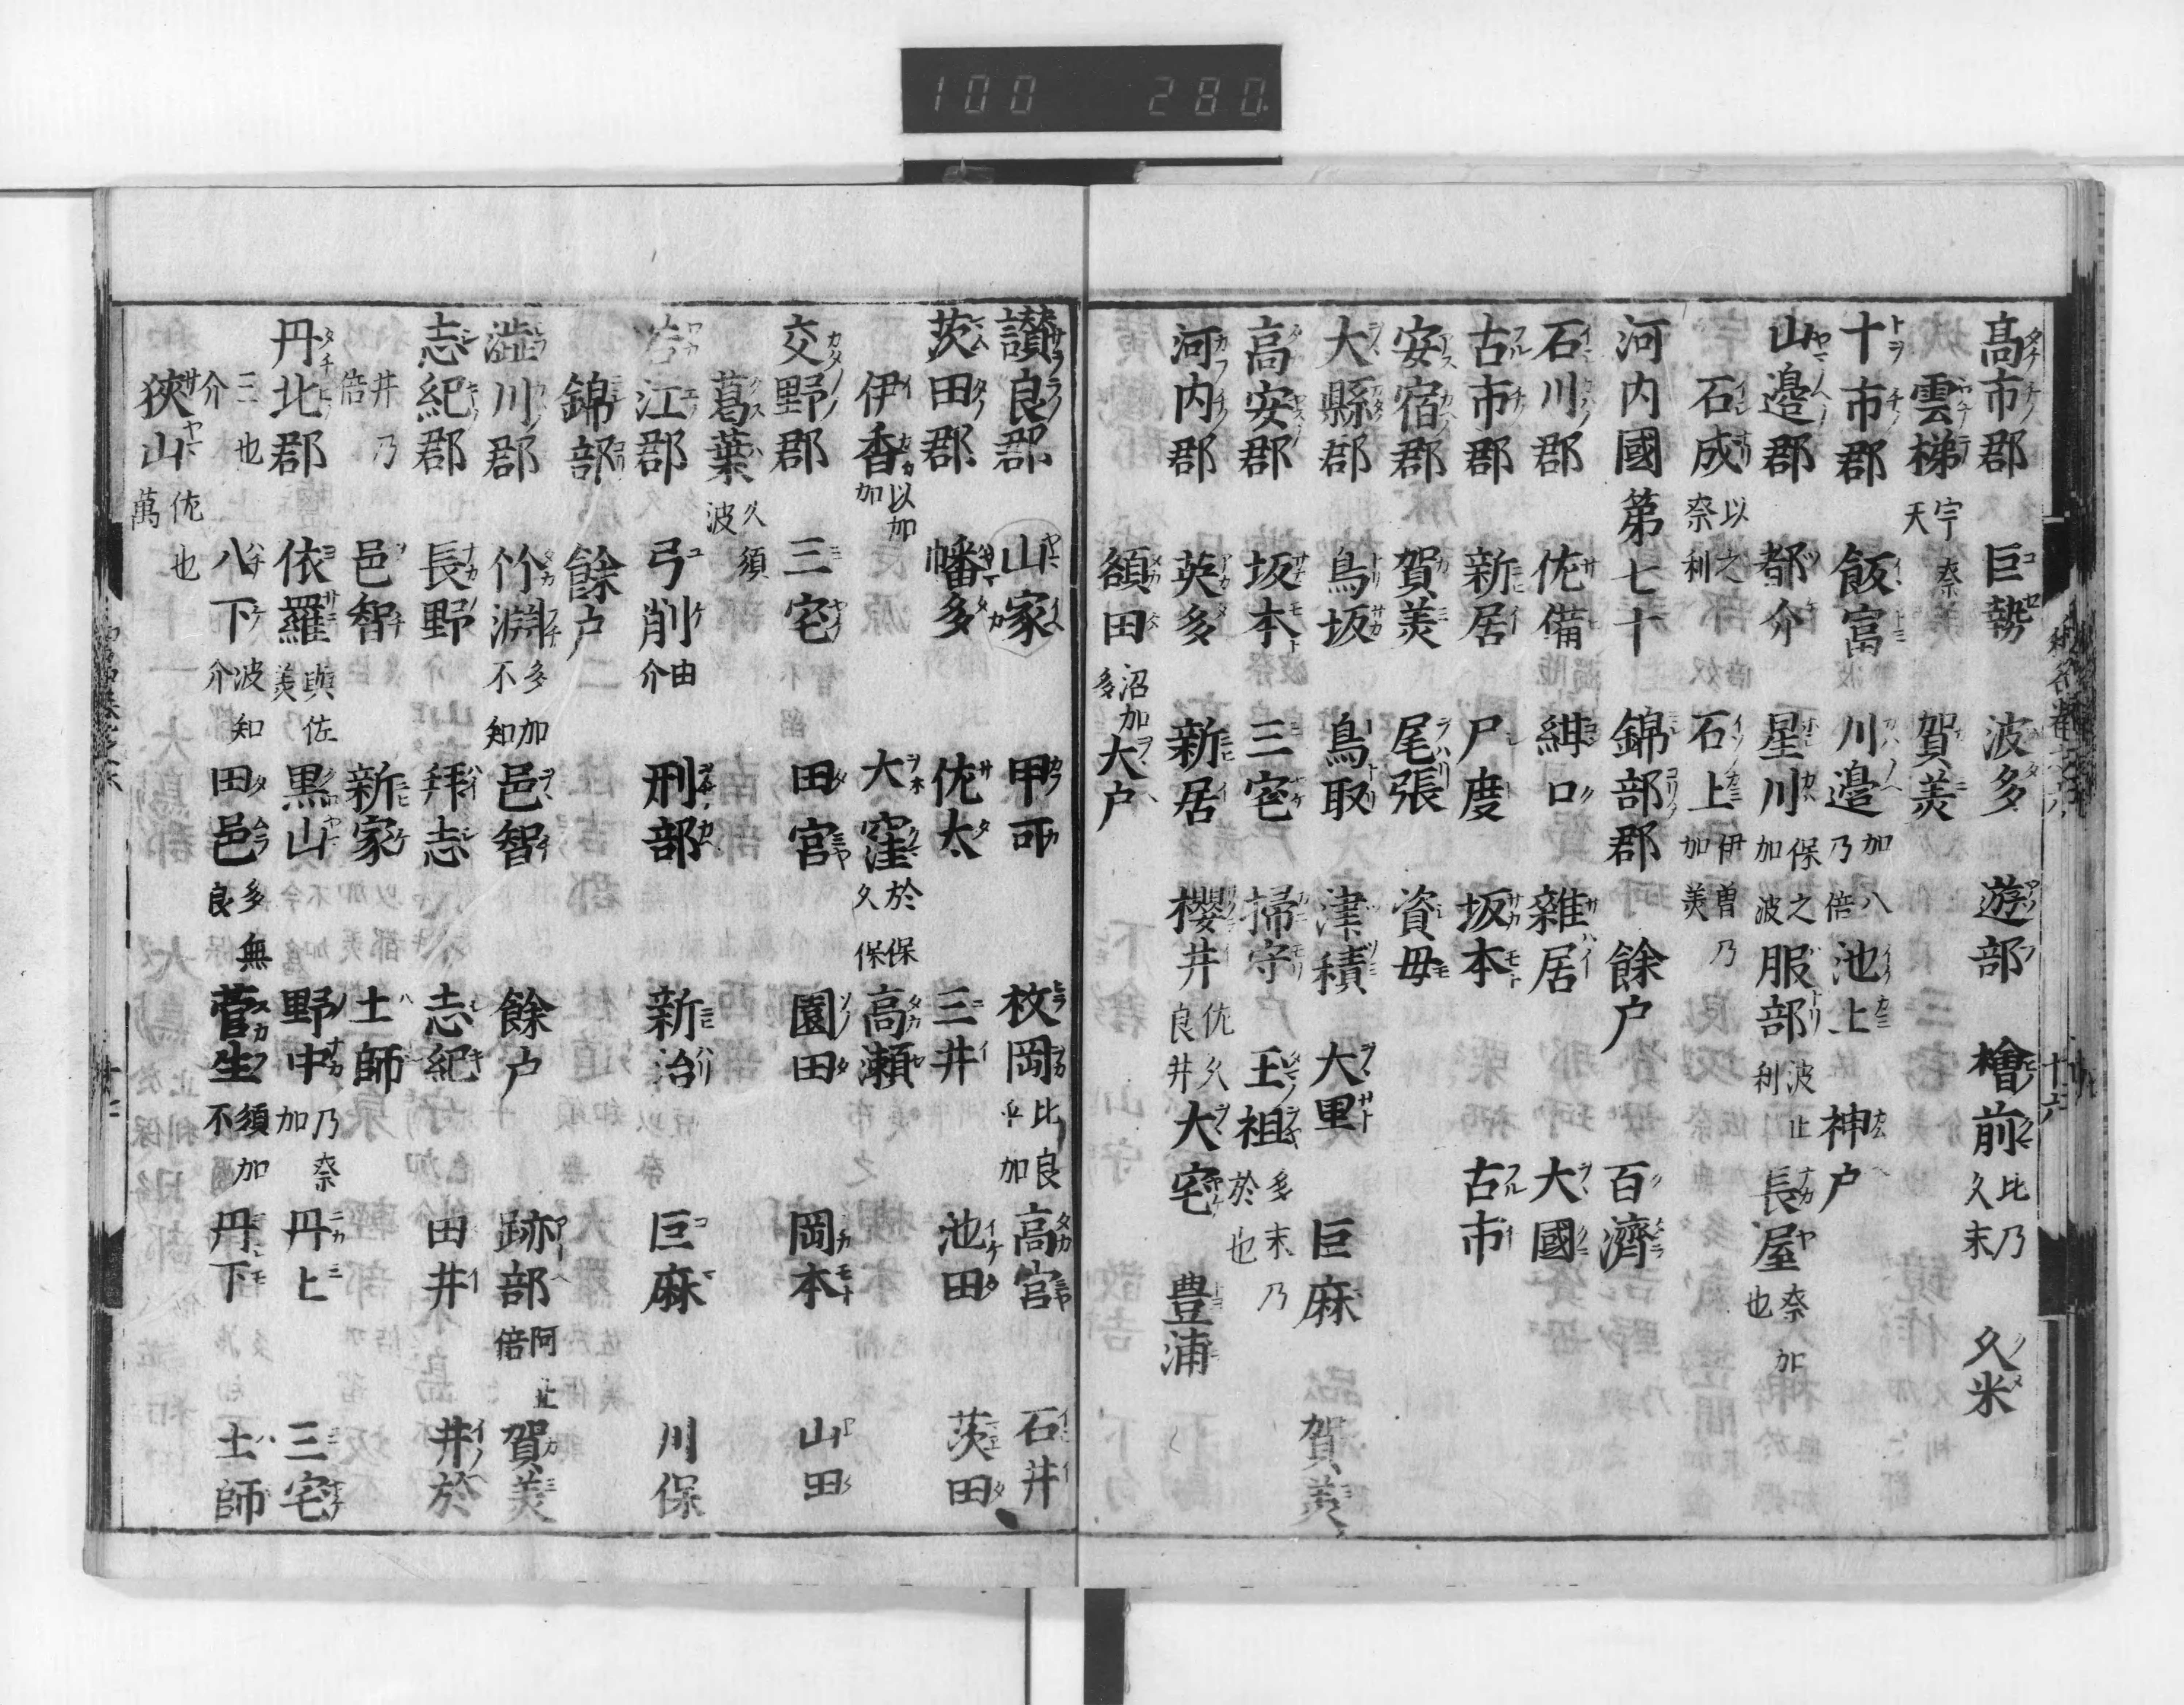 100 280.
髙市郡 巨勢 波多 遊部 檜前比乃久末 久米
雲梯宇奈天 賀美
十市郡 飯富 川邉加八乃倍 池上 神戸
山邉郡 都介 星川保之加波 服部波止利 長屋奈加也
石成以之奈利 石上伊曽乃加美
河内國第七十 錦部郡 餘戸 百濟
石川郡 佐備 紺口 雜居 大國
古市郡 新居 尸度 坂本 古市
安宿郡 賀美 尾張 資母
大縣郡 鳥坂 鳥取 津積 大里 巨麻 賀美
高安郡 坂本 三宅 掃守 玉祖多末乃於也
河内郡 英多 新居 櫻井佐久良井 大宅 豊浦
額田沼加多 大戸
讃良郡 山家 甲可 枚岡比良乎加 高宮 石井
茨田郡 幡多 佐太 三井 池田 茨田
伊香以加加 大窪於保久保 高瀬
交野郡 三宅 田宮 園田 岡本 山田
葛葉久須波
若江郡 弓削由介 刑部 新治 巨麻 川保
錦部 餘戸
澁川郡 竹渕多加不知 邑智 餘戸 跡部阿止倍 賀美
志紀郡 長野 拜志 志紀 田井 井於井乃倍
邑智 新家 土師
丹北郡 依羅與佐美 黒山 野中乃奈加 丹上 三宅三也介
八下波知介 田邑多無良 菅生須加不 丹下 土師
狹山佐也萬